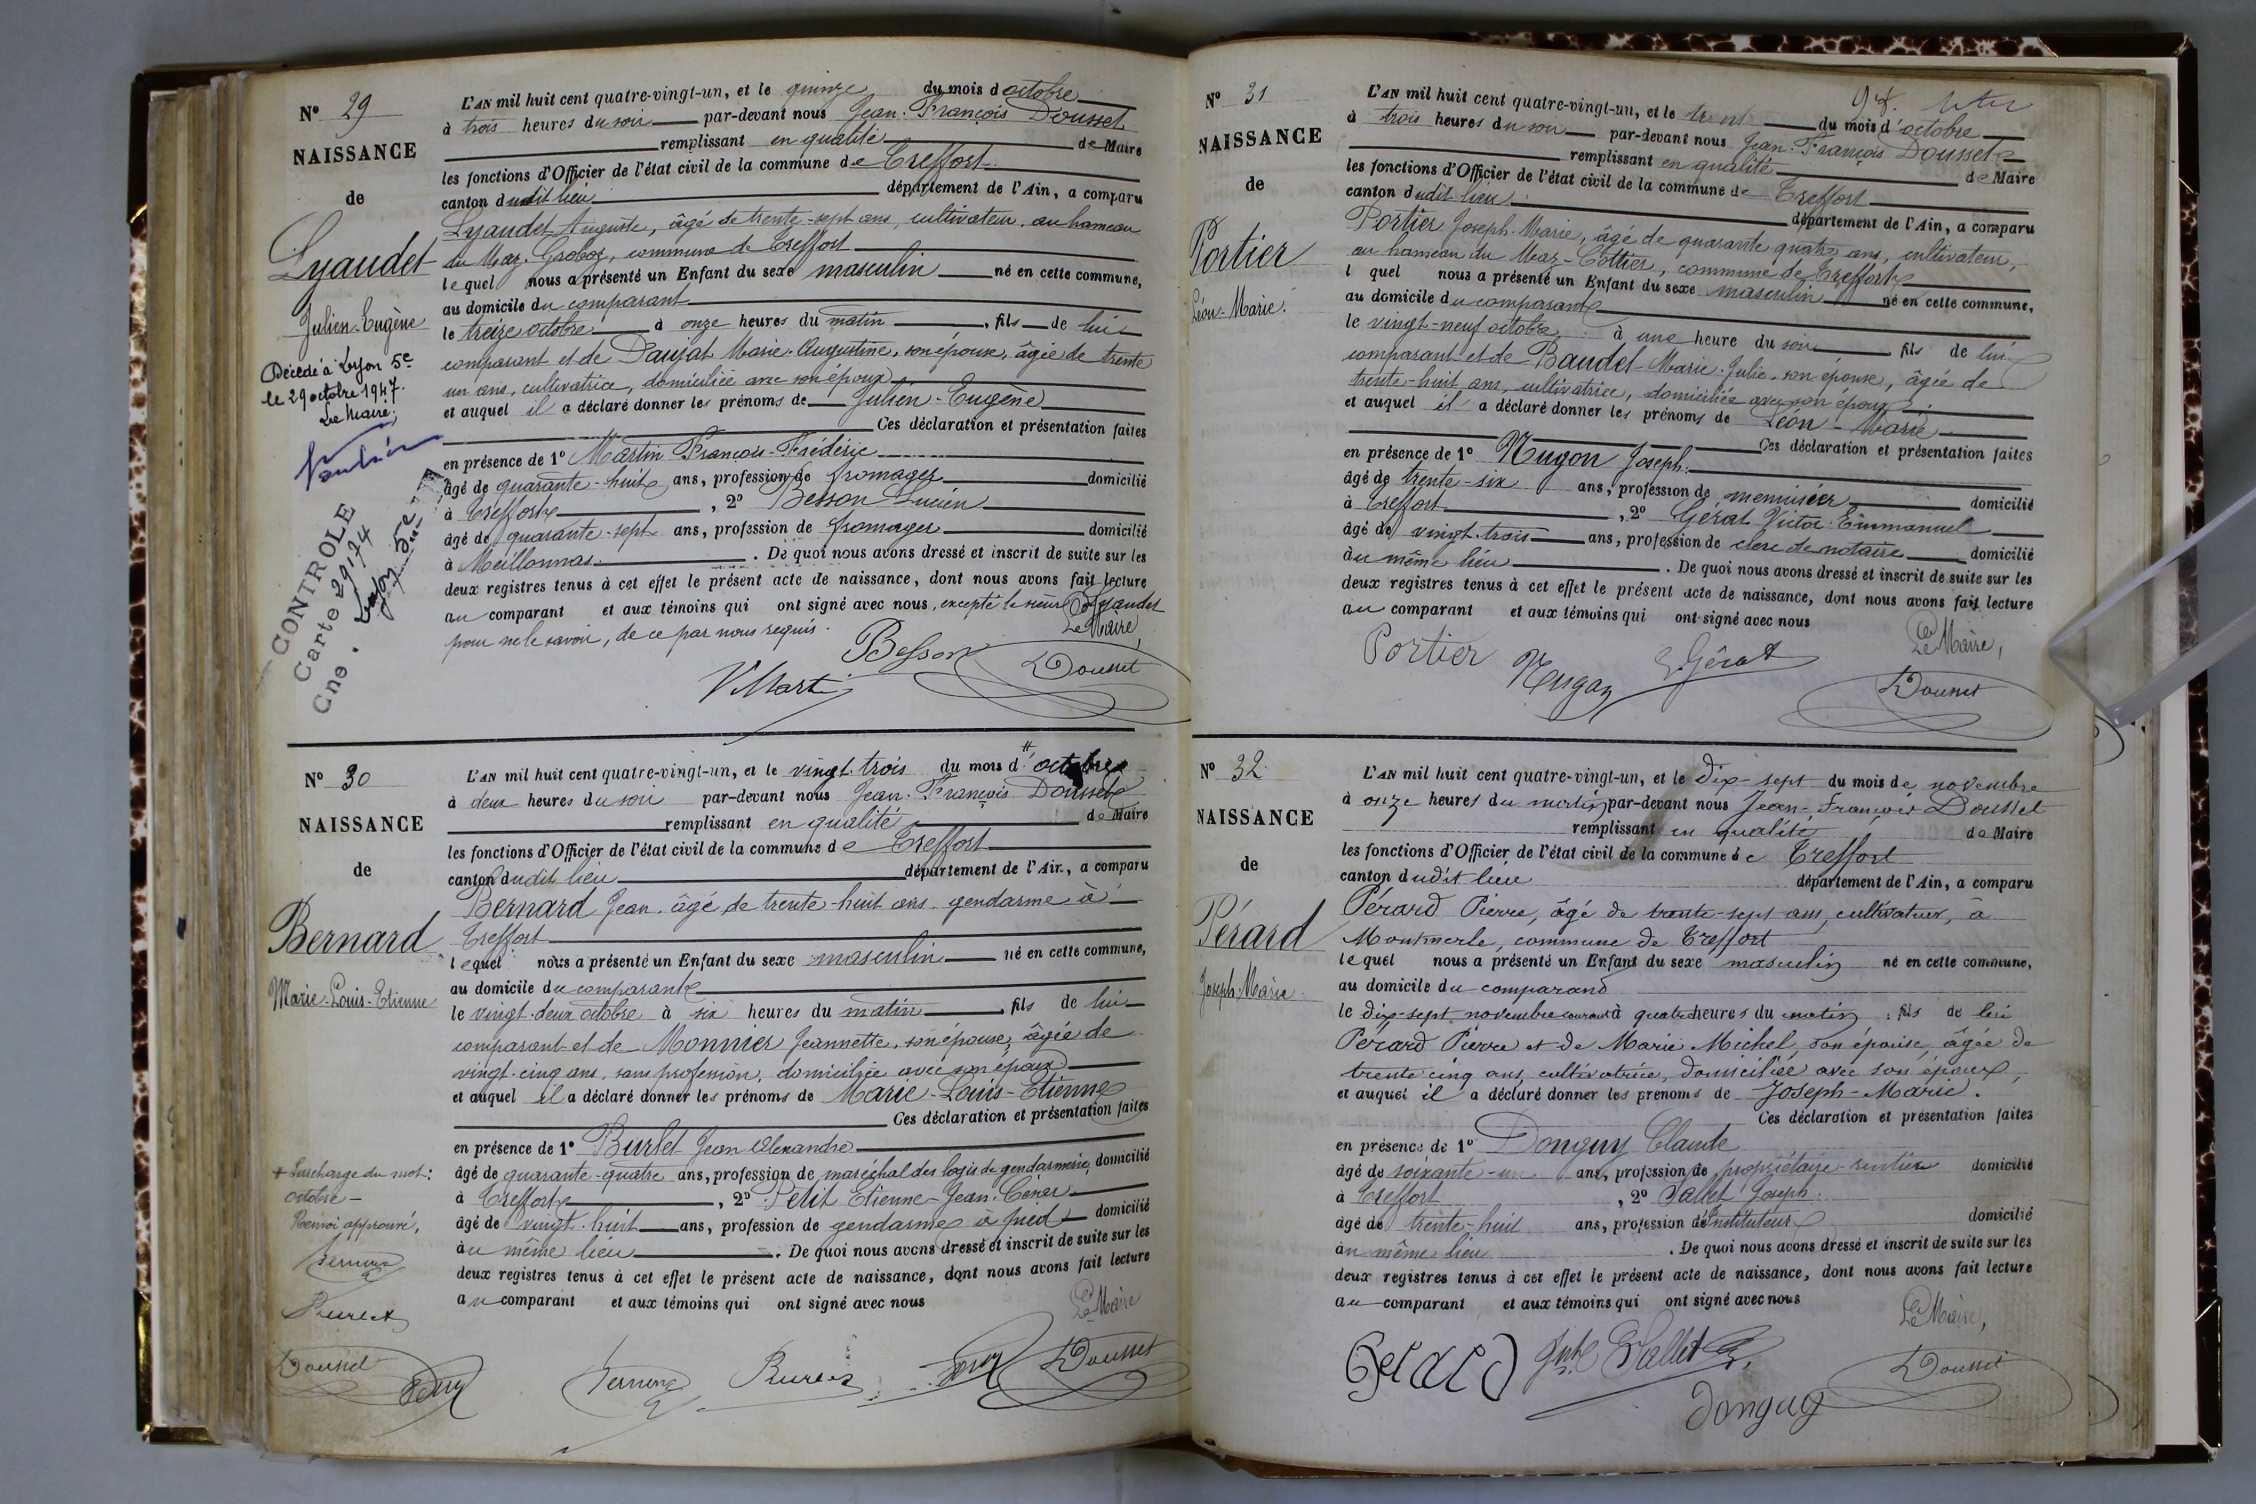 N° 29
NAISSANCE
de
Lyaudet
Julien-Eugène
Décédé à Lyon 5e
le 29 octobre 1947.
Le Maire,
CONTROLE
Carte 29174
Cne. Lyon 5e
L'AN mil huit cent quatre-vingt-un, et le quinze du mois d octobre
à trois heures du soir par-devant nous Jean-François Dousset
remplissant en qualité de Maire
les fonctions d'Officier de l'état civil de la commune de Treffort
canton dudit lieu département de l'Ain, a comparu
Lyaudet Auguste, âgé de trente-sept ans, cultivateur, au hameau
du Maz-Groboz, commune de Treffort
lequel nous a présenté un Enfant du sexe masculin né en cette commune,
au domicile du comparant
le treize octobre à onze heures du matin, fils de lui
comparant et de Daujat Marie-Augustine, son épouse, âgée de trente
un ans, cultivatrice, domiciliée avec son époux
et auquel il a déclaré donner les prénoms de Julien-Eugène
Ces déclaration et présentation faites
en présence de 1° Martin François-Frédéric
âgé de quarante-huit ans, profession de fromager domicilié
à Treffort, 2° Besson Lucien
âgé de quarante-sept ans, profession de fromager domicilié
à Meillonnas. De quoi nous avons dressé et inscrit de suite sur les
deux registres tenus à cet effet le présent acte de naissance, dont nous avons fait lecture
au comparant et aux témoins qui ont signé avec nous, excepté le sieur Lyaudet
pour ne le savoir, de ce par nous requis.
Le Maire,
Besson Dousset
N° 30
NAISSANCE
de
Bernard
Marie-Louis-Etienne
+ Surcharge du mot:
octobre-
Renvoi approuvé,
Burlet
Dousset
L'AN mil huit cent quatre-vingt-un, et le vingt-trois du mois d' octobre
à deux heures du soir par-devant nous Jean-François Dousset
remplissant en qualité de Maire
les fonctions d'Officier de l'état civil de la commune de Treffort
canton dudit lieu département de l'Ain, a comparu
Bernard Jean, âgé de trente-huit ans gendarme à
Treffort
lequel nous a présenté un Enfant du sexe masculin né en cette commune,
au domicile du comparant
le vingt-deux octobre à six heures du matin, fils de lui
comparant et de Monnier Jeannette, son épouse, âgée de
vingt-cinq ans, sans profession, domiciliée avec son époux
et auquel il a déclaré donner les prénoms de Marie-Louis-Etienne
Ces déclaration et présentation faites
en présence de 1° Burlet Jean Alexandre
âgé de quarante-quatre ans, profession de maréchal des logis de gendarmerie, domicilié
à Treffort, 2° Petit Etienne-Jean-Cénar
âgé de vingt-huit ans, profession de gendarme à pied domicilié
au même lieu. De quoi nous avons dressé et inscrit de suite sur les
deux registres tenus à cet effet le présent acte de naissance, dont nous avons fait lecture
au comparant et aux témoins qui ont signé avec nous
Le Maire
Burlet Dousset
N° 31
NAISSANCE
de
Portier
Léon-Marie.
L'AN mil huit cent quatre-vingt-un, et le trente du mois d'octobre
à trois heures du soir par-devant nous Jean-François Dousset
remplissant en qualité de Maire
les fonctions d'Officier de l'état civil de la commune de Treffort
canton dudit lieu département de l'Ain, a comparu
Portier Joseph-Marie, âgé de quarante quatre ans, cultivateur,
au hameau du Maz-Cottier, commune de Treffort
lequel nous a présenté un Enfant du sexe masculin né en cette commune,
au domicile du comparant
le vingt-neuf octobre à une heure du soir fils de lui
comparant et de Baudet Marie-Julie, son épouse, âgée de
trente-huit ans, cultivatrice, domiciliée avec son époux
et auquel il a déclaré donner les prénoms de Léon-Marie
Ces déclaration et présentation faites
en présence de 1° Nugon Joseph
âgé de trente-six ans, profession de menuisier domicilié
à Treffort, 2° Gérat Victor-Emmanuel
âgé de vingt-trois ans, profession de clerc de notaire domicilié
au même lieu. De quoi nous avons dressé et inscrit de suite sur les
deux registres tenus à cet effet le présent acte de naissance, dont nous avons fait lecture
au comparant et aux témoins qui ont signé avec nous
Le Maire,
Portier Nugon Gérat Dousset
N° 32
NAISSANCE
de
Pérard
Joseph-Marie
L'AN mil huit cent quatre-vingt-un, et le dix-sept du mois de novembre
à onze heures du matin par-devant nous Jean-François Dousset
remplissant en qualité de Maire
les fonctions d'Officier de l'état civil de la commune de Treffort
canton dudit lieu département de l'Ain, a comparu
Pérard Pierre, âgé de trente-sept ans, cultivateur, à
Montmerle, commune de Treffort
lequel nous a présenté un Enfant du sexe masculin né en cette commune,
au domicile du comparant
le dix-sept novembre courant à quatre heures du matin, fils de lui
Pérard Pierre et de Marie Michel, son épouse, âgée de
trente cinq ans, cultivatrice, domiciliée avec son époux,
et auquel il a déclaré donner les prénoms de Joseph-Marie.
Ces déclaration et présentation faites
en présence de 1° Donguy Claude
âgé de soixante-un ans, profession de propriétaire-rentier domicilié
à Treffort, 2° Vallet Joseph
âgé de trente-huit ans, profession d'Instituteur domicilié
au même lieu. De quoi nous avons dressé et inscrit de suite sur les
deux registres tenus à cet effet le présent acte de naissance, dont nous avons fait lecture
au comparant et aux témoins qui ont signé avec nous
Le Maire,
Perard Vallet Donguy Dousset